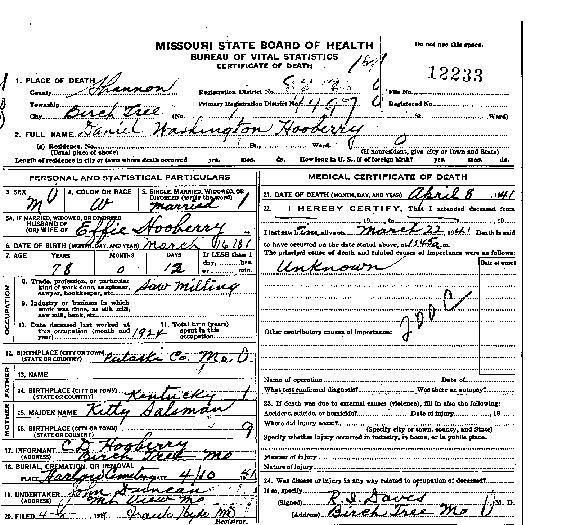 MISSOURI STATE BOARD OF HEALTH
BUREAU OF VITAL STATISTICS
CERTIFICATE OF DEATH
Do not use this space.
12233
1. PLACE OF DEATH
County Shannon Registration District No. File No.
Township Primary Registration District No. 4497 Registered No.
City Birch Tree (No. St. Ward)
2. FULL NAME Daniel Washington Hooberry
(a) Residence, No. St., Ward.
(Usual place of abode) (If nonresident, give city or town and State)
Length of residence in city or town where death occurred yrs. mos. ds. How long in U.S., if of foreign birth? yrs. mos. ds.
PERSONAL AND STATISTICAL PARTICULARS
3. SEX M
4. COLOR OR RACE W
5. SINGLE, MARRIED, WIDOWED, OR DIVORCED (write the word) Married
5A. IF MARRIED, WIDOWED, OR DIVORCED
HUSBAND OF
(OR) WIFE OF Effie Hooberry
6. DATE OF BIRTH (MONTH, DAY, AND YEAR) March
7. AGE YEARS MONTHS DAYS If LESS than 1
78 0 12 day, hrs.
or min.
OCCUPATION
8. Trade, profession, or particular kind of work done, as spinner, sawyer, bookkeeper, etc. Saw Milling
9. Industry or business in which work was done, as silk mill, saw mill, bank, etc.
10. Date deceased last worked at this occupation (month and year) 1924
11. Total time (years) spent in this occupation
12. BIRTHPLACE (CITY OR TOWN) Pulaski Co. Mo.
(STATE OR COUNTRY)
FATHER
13. NAME
14. BIRTHPLACE (CITY OR TOWN) Kentucky
(STATE OR COUNTRY)
MOTHER
15. MAIDEN NAME Kitty Salsman
16. BIRTHPLACE (CITY OR TOWN) 9
(STATE OR COUNTRY)
17. INFORMANT C D Hooberry
(ADDRESS) Birch Tree Mo
18. BURIAL, CREMATION, OR REMOVAL
PLACE 4/10 41
19. UNDERTAKER Duncan
(ADDRESS) Mtn View Mo
20. FILED
Registrar.
MEDICAL CERTIFICATE OF DEATH
21. DATE OF DEATH (MONTH, DAY, AND YEAR) April 8 1941
22. I HEREBY CERTIFY, That I attended deceased from
I last saw alive on March 22 1941 Death is said
to have occurred on the date stated above, at m.
The principal cause of death and related causes of importance were as follows:
Date of onset
Unknown
200C
Other contributory causes of importance:
Name of operation Date of
What test confirmed diagnosis? Was there an autopsy?
23. If death was due to external causes (violence), fill in also the following:
Accident, suicide, or homicide? Date of injury 19
Where did injury occur?
(Specify city or town, county, and State)
Specify whether injury occurred in industry, in home, or in public place.
Manner of injury
Nature of injury
24. Was disease or injury in any way related to occupation of deceased?
If so, specify
(Signed) R. I. Davis M. D.
(Address) Birch Tree Mo